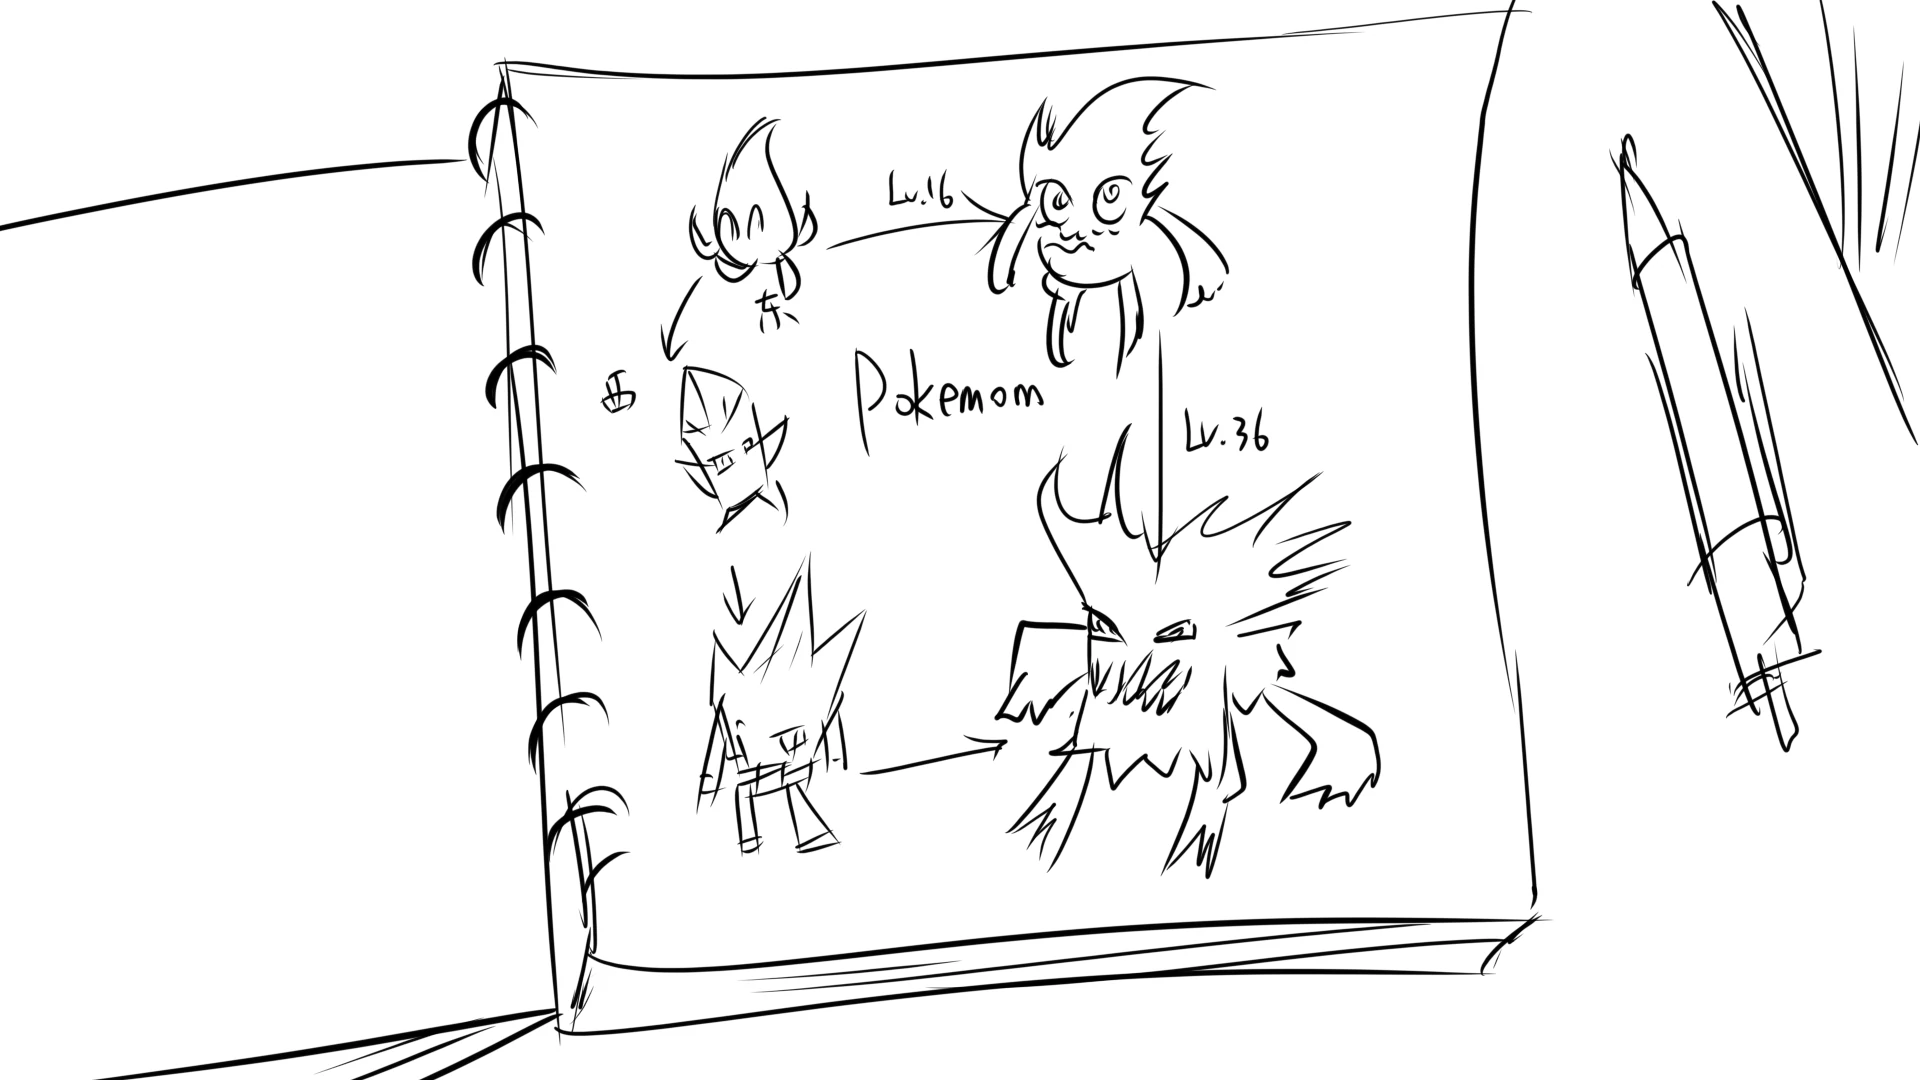 Lv.16
东
西
Pokemom
Lv.36